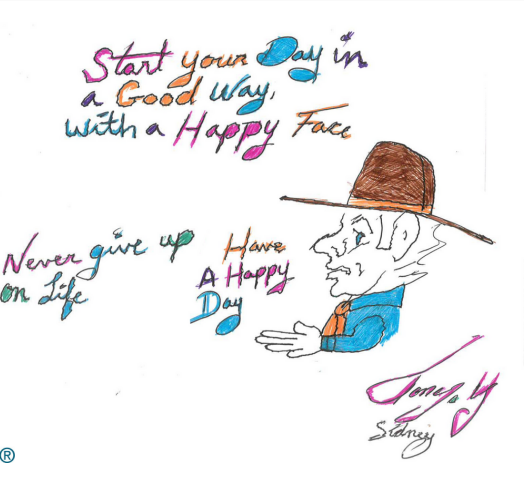 Start your Day in
a Good Way,
with a Happy Face
Never give up
on Life
Have
A Happy
Day
Sidney
®